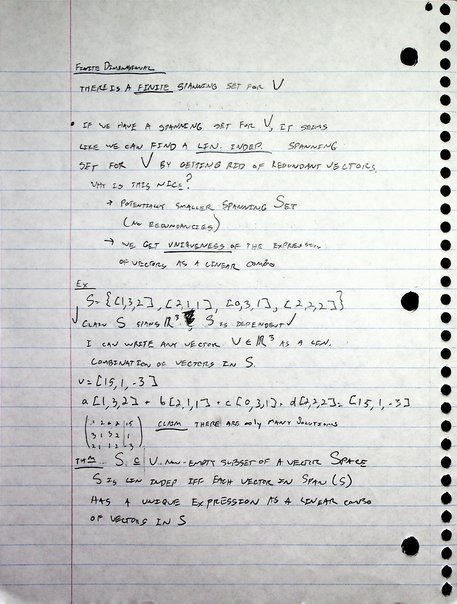 FINITE DIMENSIONAL
THERE IS A FINITE SPANNING SET FOR V
• IF WE HAVE A SPANNING SET FOR V, IT SEEMS
LIKE WE CAN FIND A LIN. INDEP. SPANNING
SET FOR V BY GETTING RID OF REDUNDANT VECTORS.
WHY IS THIS NICE?
→ POTENTIALLY SMALLER SPANNING SET
(NO REDUNDANCIES)
→ WE GET UNIQUENESS OF THE EXPRESSION
OF VECTORS AS A LINEAR COMBO
EX
S={[1,3,2], [2,1,1], [0,3,1], [2,2,2]}
√ CLAIM S SPANS ℝ³, S IS DEPENDENT √
I CAN WRITE ANY VECTOR V∈ℝ³ AS A LIN.
COMBINATION OF VECTORS IN S.
V=[15,1,-3]
a[1,3,2] + b[2,1,1] + c[0,3,1] + d[2,2,2] = [15,1,-3]
CLAIM THERE ARE MANY SOLUTIONS
THM S ⊆ V NON-EMPTY SUBSET OF A VECTOR SPACE
S IS LIN INDEP IFF EACH VECTOR IN SPAN(S)
HAS A UNIQUE EXPRESSION AS A LINEAR COMBO
OF VECTORS IN S